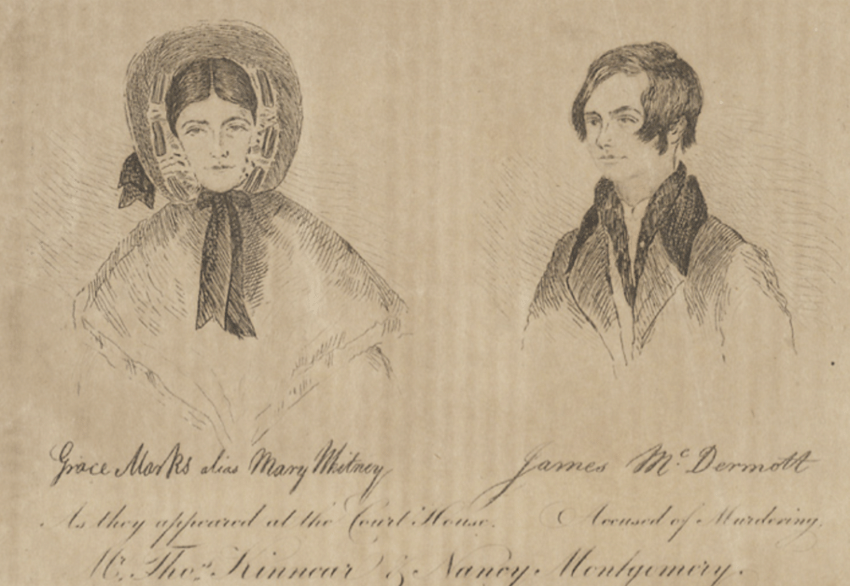 Grace Marks alias Mary Whitney James Mc Dermott
As they appeared at the Court House. Accused of Murdering
Mr. Thos. Kinnear & Nancy Montgomery.